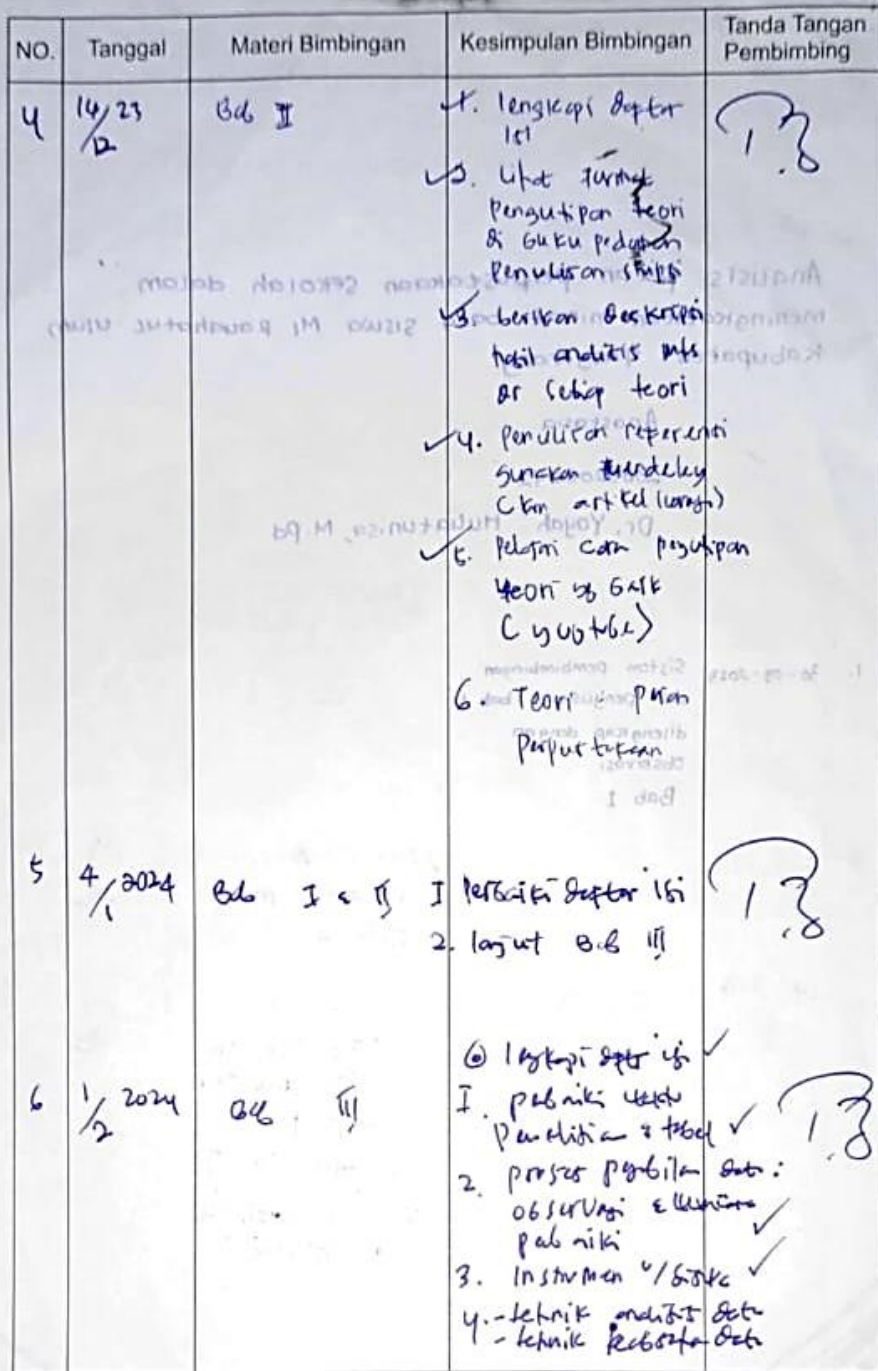 NO. Tanggal Materi Bimbingan Kesimpulan Bimbingan Tanda Tangan Pembimbing
4 14/12 23 Bab II 1. lengkapi daftar
isi
2. Lihat format
Pengutipan teori
di buku pedoman
Penulisan skripsi
3. berikan deskripsi
hasil analisis
dr setiap teori
4. Penulisan referensi
gunakan mendeley
artikel
5. Pelajari cara pengutipan
teori yg baik
(youtube)
6. Teori peran
perpustakaan
5 4/1 2024 Bab I & II I perbaiki daftar isi
2. lanjut Bab III
lengkapi daftar isi
6 1/2 2024 Bab III I. perbaiki waktu
Penelitian & tabel
2. proses pengambilan data:
observasi & wawancara
perbaiki
3. Instrumen u/ siswa
4. - tehnik analisis data
- tehnik keabsahan data